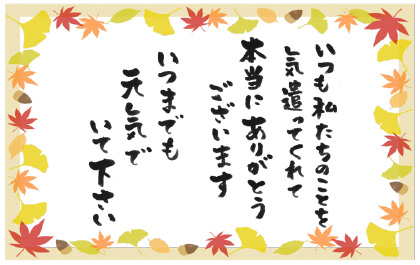 いつも私たちのことを
気遣ってくれて
本当にありがとう
ございます
いつまでも
元気で
いて下さい